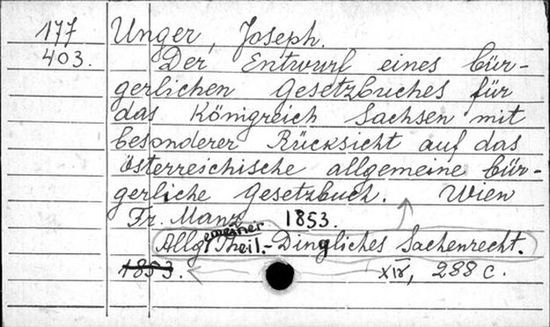 177 Unger, Joseph.
403. Der Entwurf eines bür-
gerlichen Gesetzbuches für
das Königreich Sachsen mit
besonderer Rücksicht auf das
österreichische allgemeine bür-
gerliche Gesetzbuch. Wien
Fr. Manz 1853.
Allgemeiner Theil.- Dingliches Sachenrecht.
1853. XIV, 288 c.